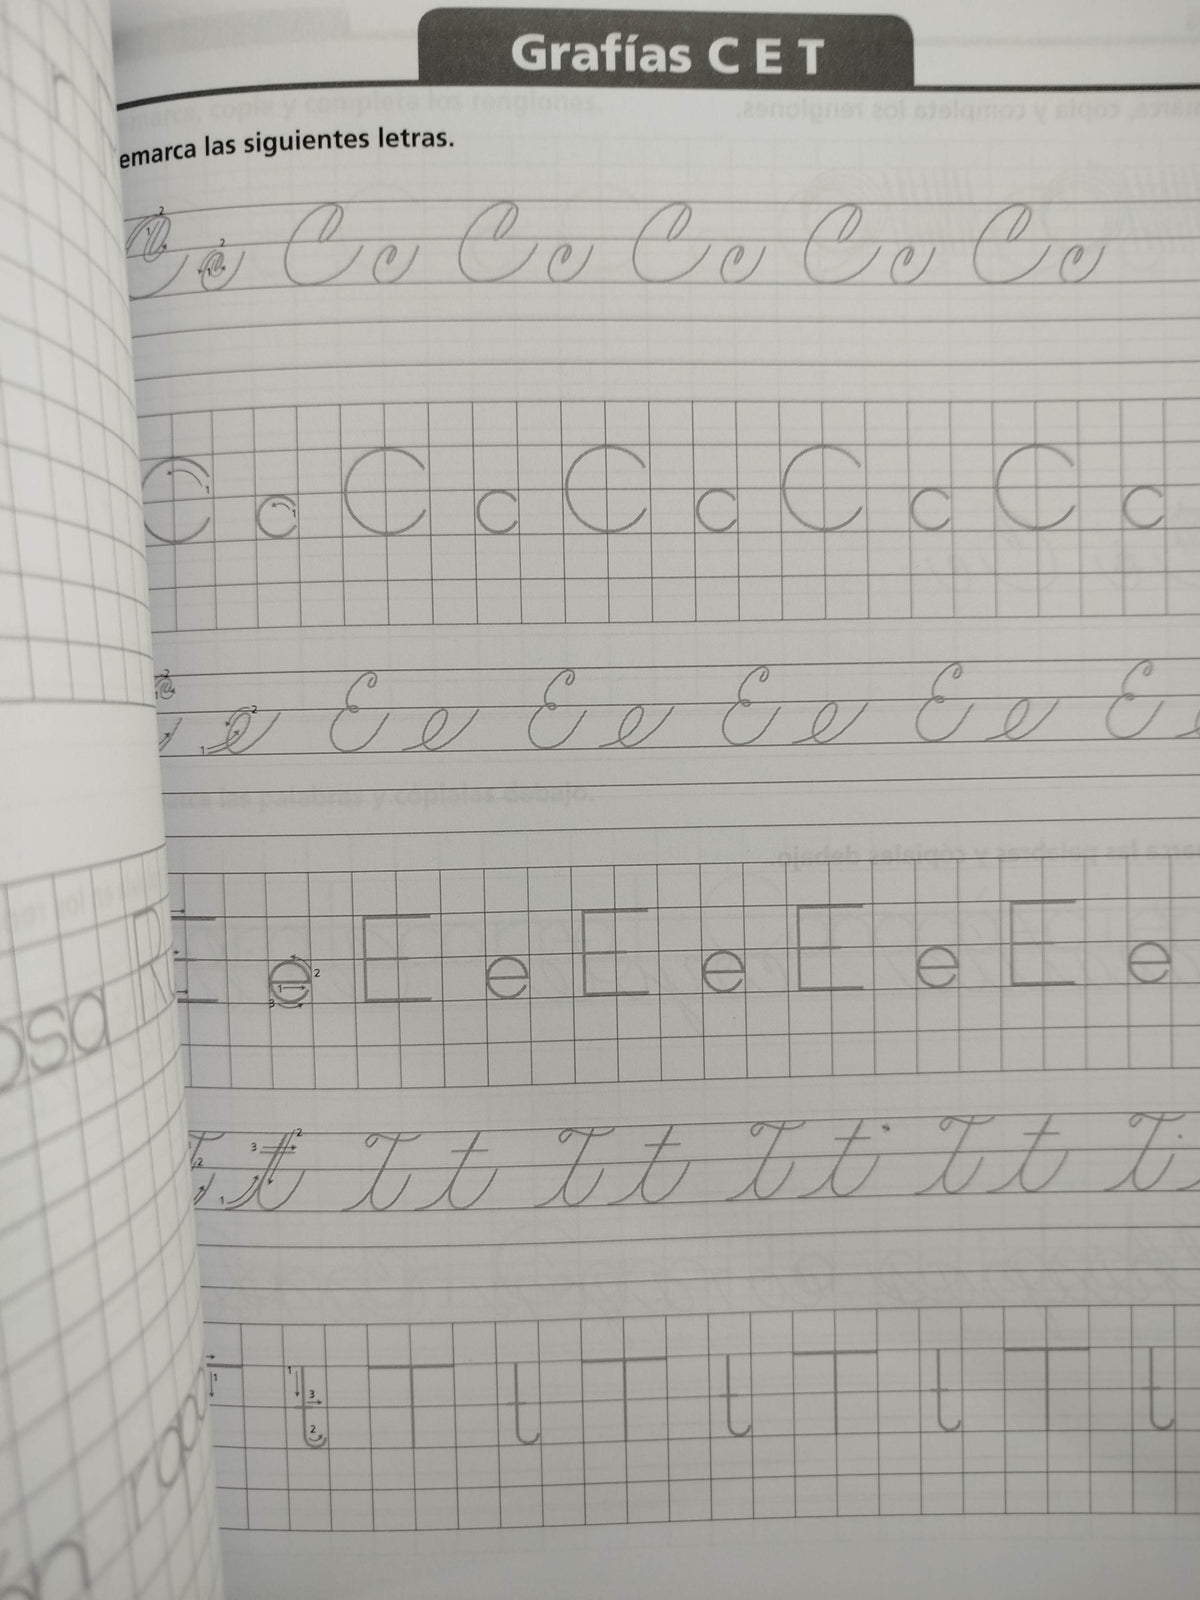 Grafías C E T
emarca las siguientes letras.
C c C c C c C c C c C c
C c C c C c C c C c
e E e E e E e E e E
E e E e E e E e E e
T t T t T t T t T t T
T t T t T t T t T t
osa R